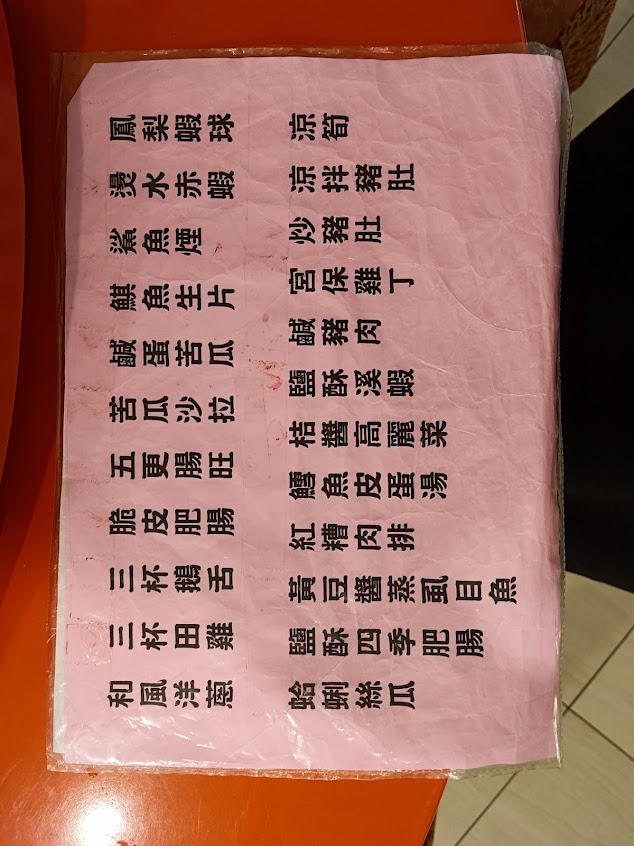 鳳梨蝦球
燙水赤蝦
鯊魚煙
鯕魚生片
鹹蛋苦瓜
苦瓜沙拉
五更腸旺
脆皮肥腸
三杯鵝舌
三杯田雞
和風洋蔥
涼筍
涼拌豬肚
炒豬肚
宮保雞丁
鹹豬肉
鹽酥溪蝦
桔醬高麗菜
鱈魚皮蛋湯
紅糟肉排
黃豆醬蒸虱目魚
鹽酥四季肥腸
蛤蜊絲瓜